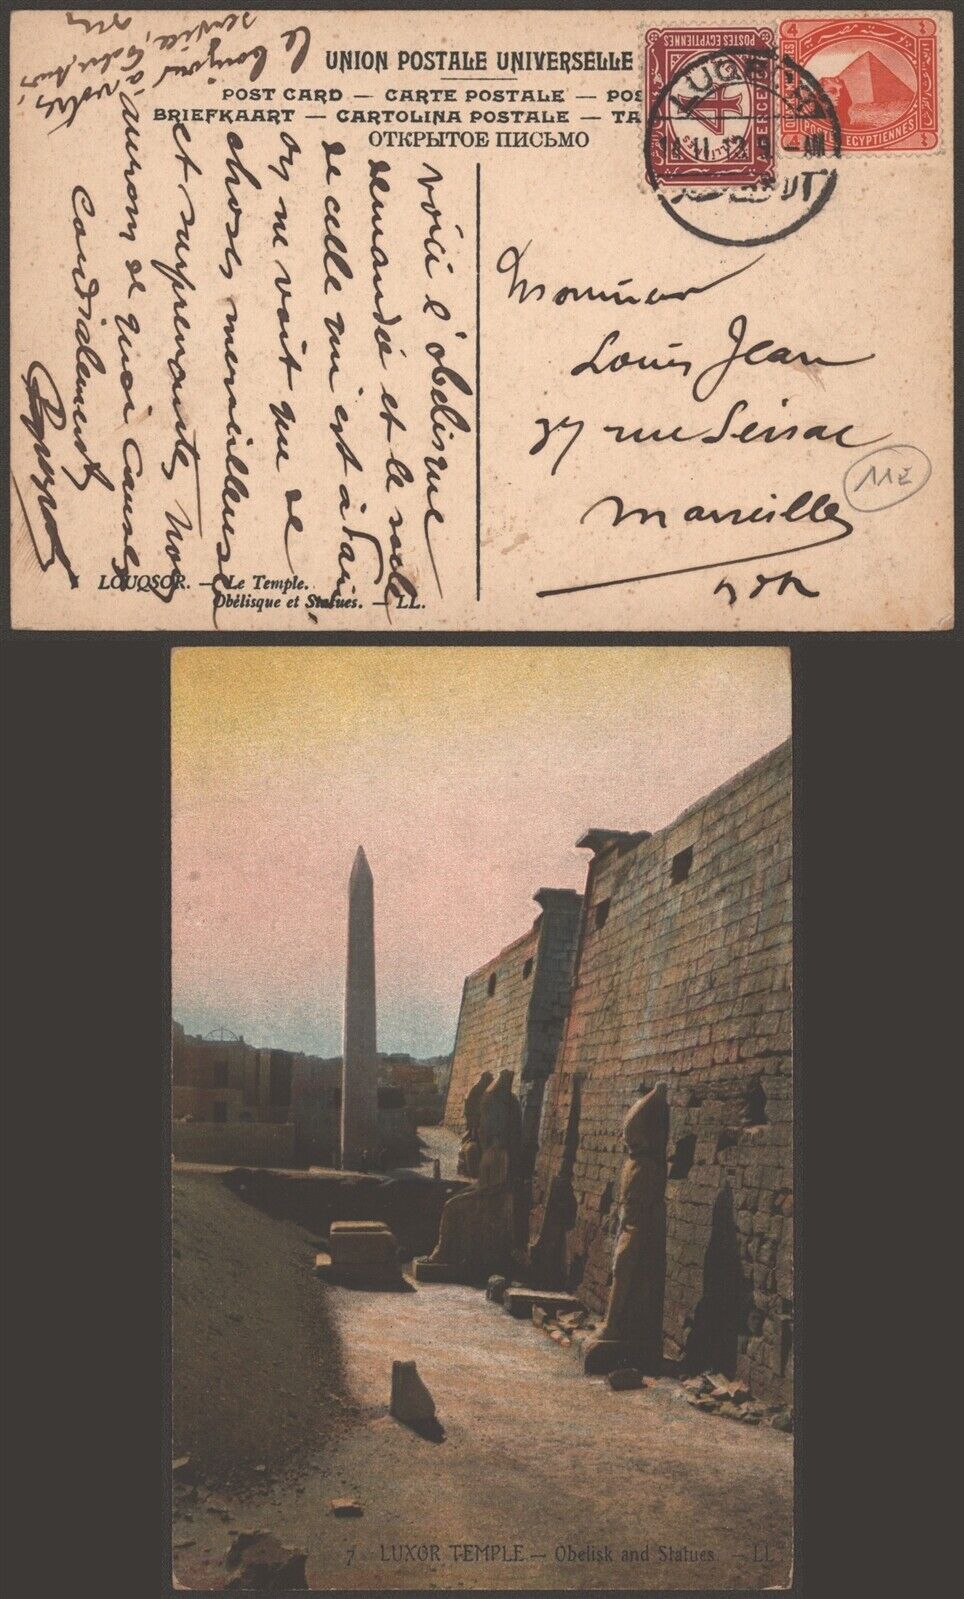 UNION POSTALE UNIVERSELLE
POST CARD — CARTE POSTALE — POS
BRIEFKAART — CARTOLINA POSTALE — TA
ОТКРЫТОЕ ПИСЬМО
POSTES EGYPTIENNES
4
POSTES EGYPTIENNES
LUQSOR
14 II 12 9 - AM
Monsieur
Louis Jean
37 rue Sénac
Marseille
112
voici l'obélisque
demandée et le socle
de celle qui est à Paris
on ne voit que de
choses merveilleuses
et surprenantes nous
aurons de quoi causer
Cordialement
le bonjour à
LOUQSOR. — Le Temple.
Obélisque et Statues. — LL.
7 LUXOR TEMPLE — Obelisk and Statues. — LL